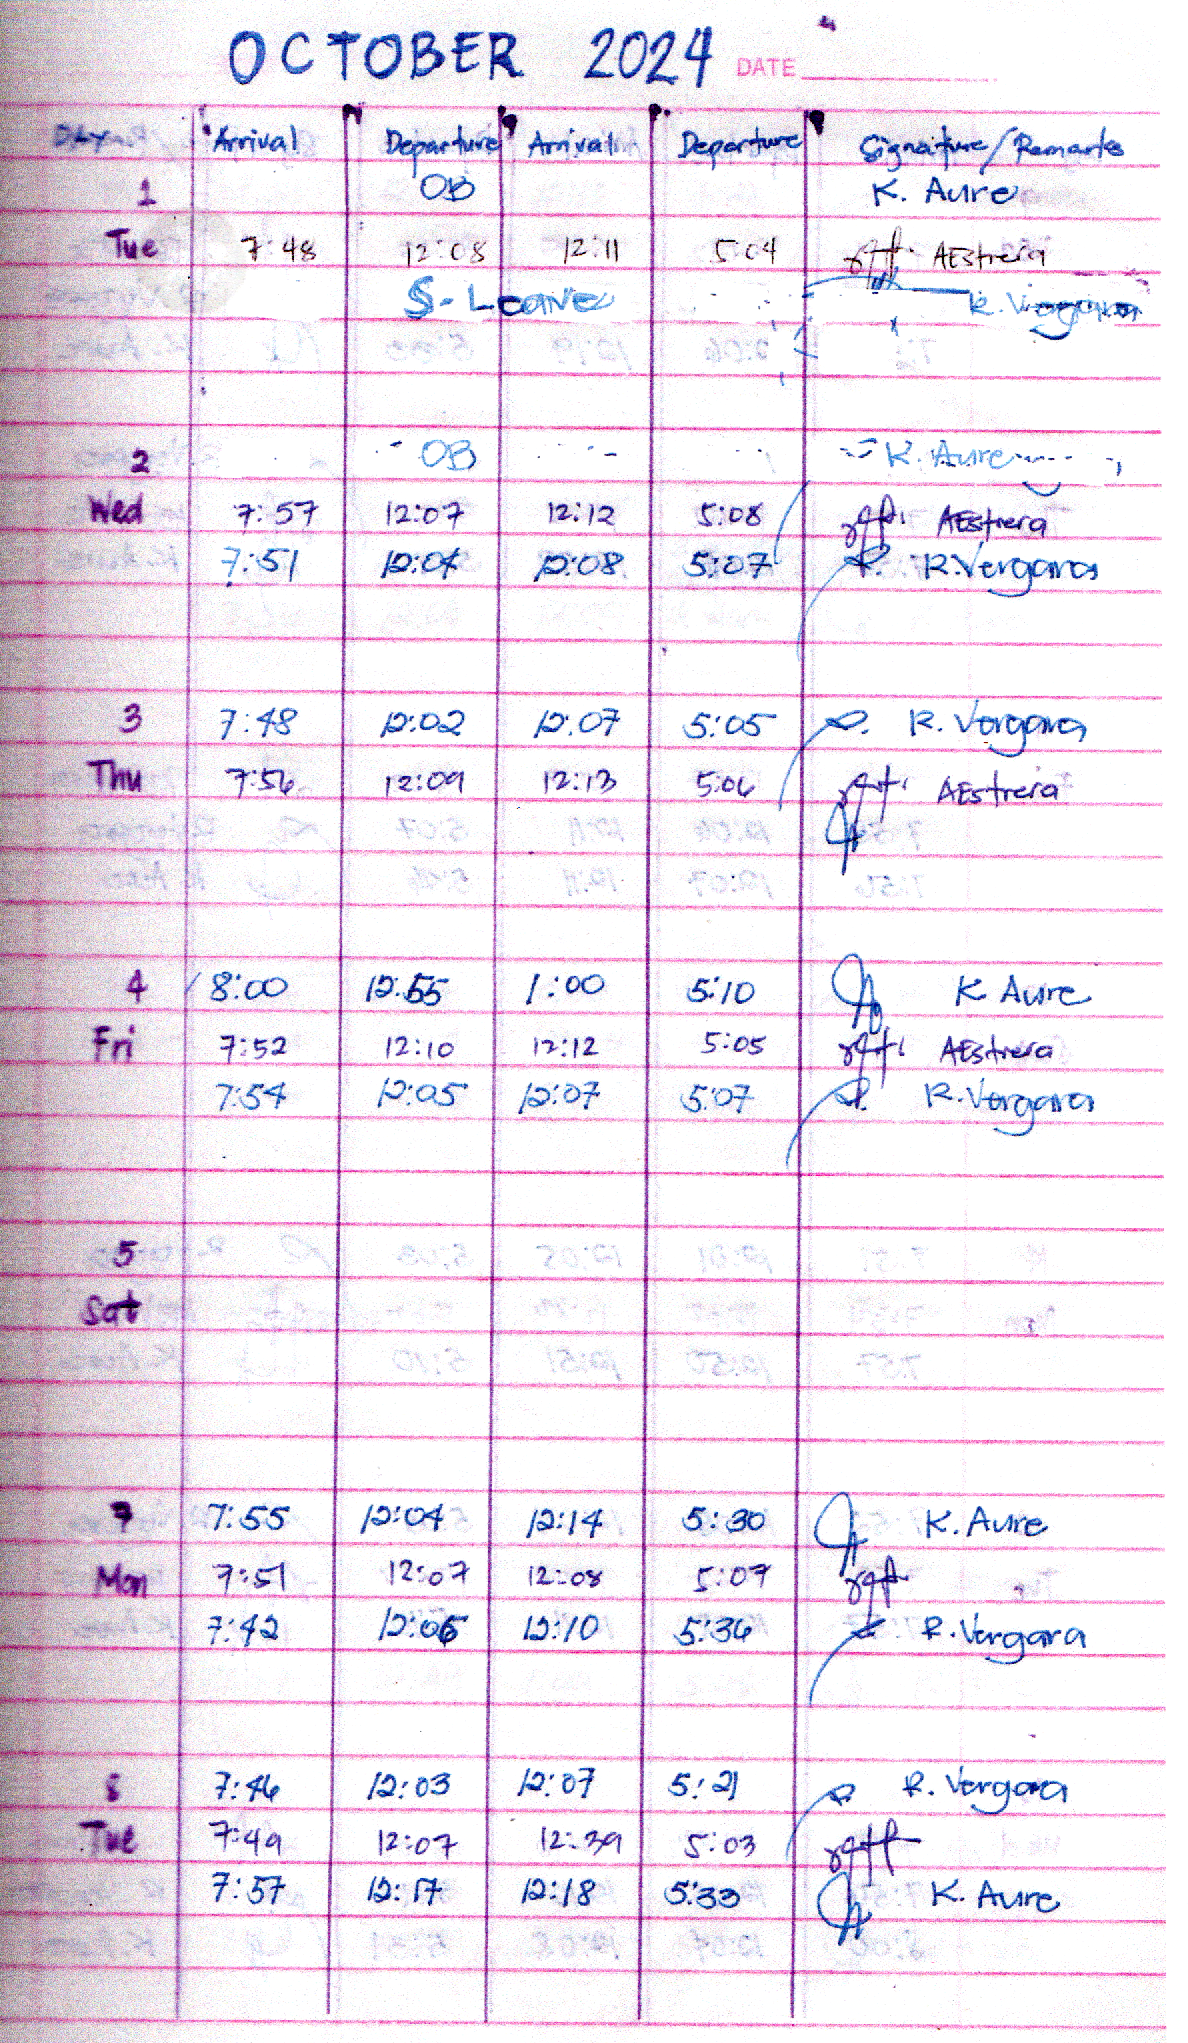 OCTOBER 2024 DATE
DAY Arrival Departure Arrival Departure Signature/Remarks
1 OB K. Aure
Tue 7:48 12:08 12:11 5:04 AEstrera
S-Leave R. Vergara
2 OB K. Aure
Wed 7:57 12:07 12:12 5:08 AEstrera
7:51 12:04 12:08 5:07 R. Vergara
3 7:48 12:02 12:07 5:05 R. Vergara
Thu 7:56 12:09 12:13 5:06 AEstrera
4 8:00 12:55 1:00 5:10 K Aure
Fri 7:52 12:10 12:12 5:05 AEstrera
7:54 12:05 12:07 5:07 R. Vergara
5
Sat
7 7:55 12:04 12:14 5:30 K. Aure
Mon 7:51 12:07 12:08 5:07
7:42 12:06 12:10 5:36 R. Vergara
8 7:46 12:03 12:07 5:21 R. Vergara
Tue 7:49 12:07 12:39 5:03
7:57 12:17 12:18 5:33 K. Aure